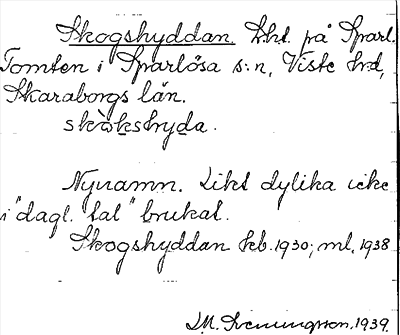 Skogshyddan. Lht. på Sparl.
Tomten i Sparlösa s:n, Viste hrd,
Skaraborgs län.
skòkshyda.
Nynamn. Likt dylika icke
i "dagl. tal" brukat.
Skogshyddan kb. 1930; ml. 1938
I.M. Svenungsson. 1939.